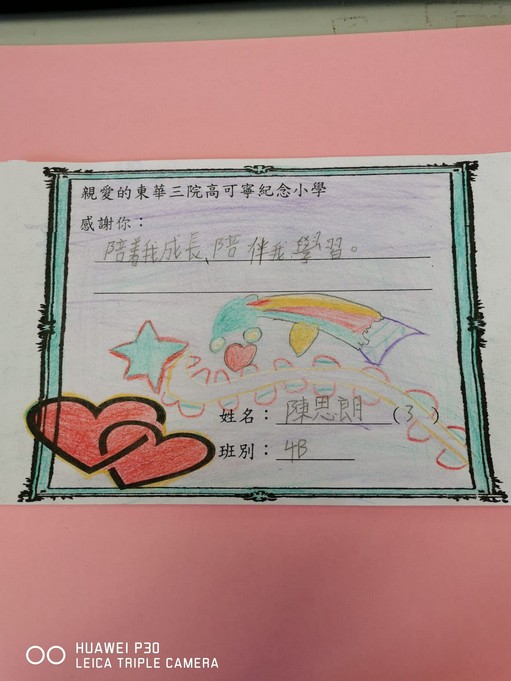 親愛的東華三院高可寧紀念小學
感謝你：
陪着我成長、陪伴我學習。
姓名：陳思朗（3）
班別：4B
HUAWEI P30
LEICA TRIPLE CAMERA